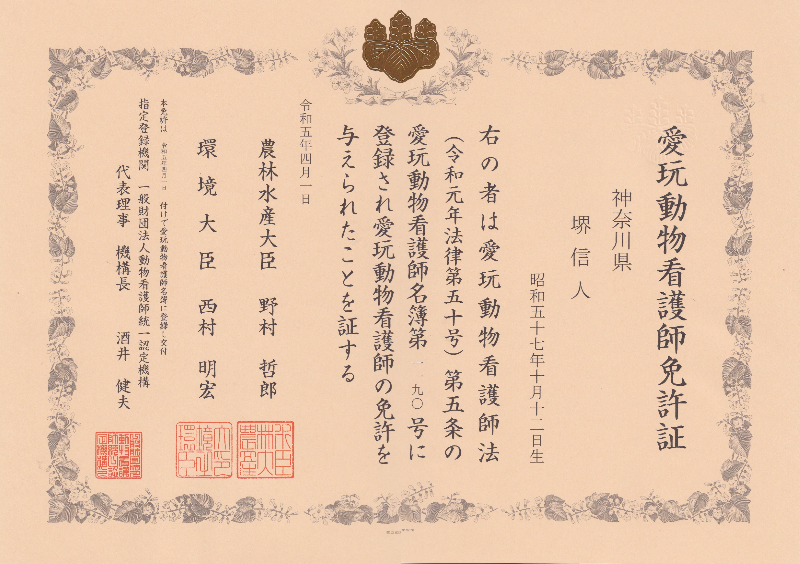 愛玩動物看護師免許証
神奈川県
堺信人
昭和五十七年十月十二日生
右の者は愛玩動物看護師法
（令和元年法律第五十号）第五条の
愛玩動物看護師名簿第 九〇号に
登録され愛玩動物看護師の免許を
与えられたことを証する
令和五年四月一日
農林水産大臣 野村 哲郎
環境大臣 西村 明宏
本免許は 令和五年四月一日 付けで愛玩動物看護師名簿に登録し交付
指定登録機関 一般財団法人動物看護師統一認定機構
代表理事 機構長 酒井 健夫